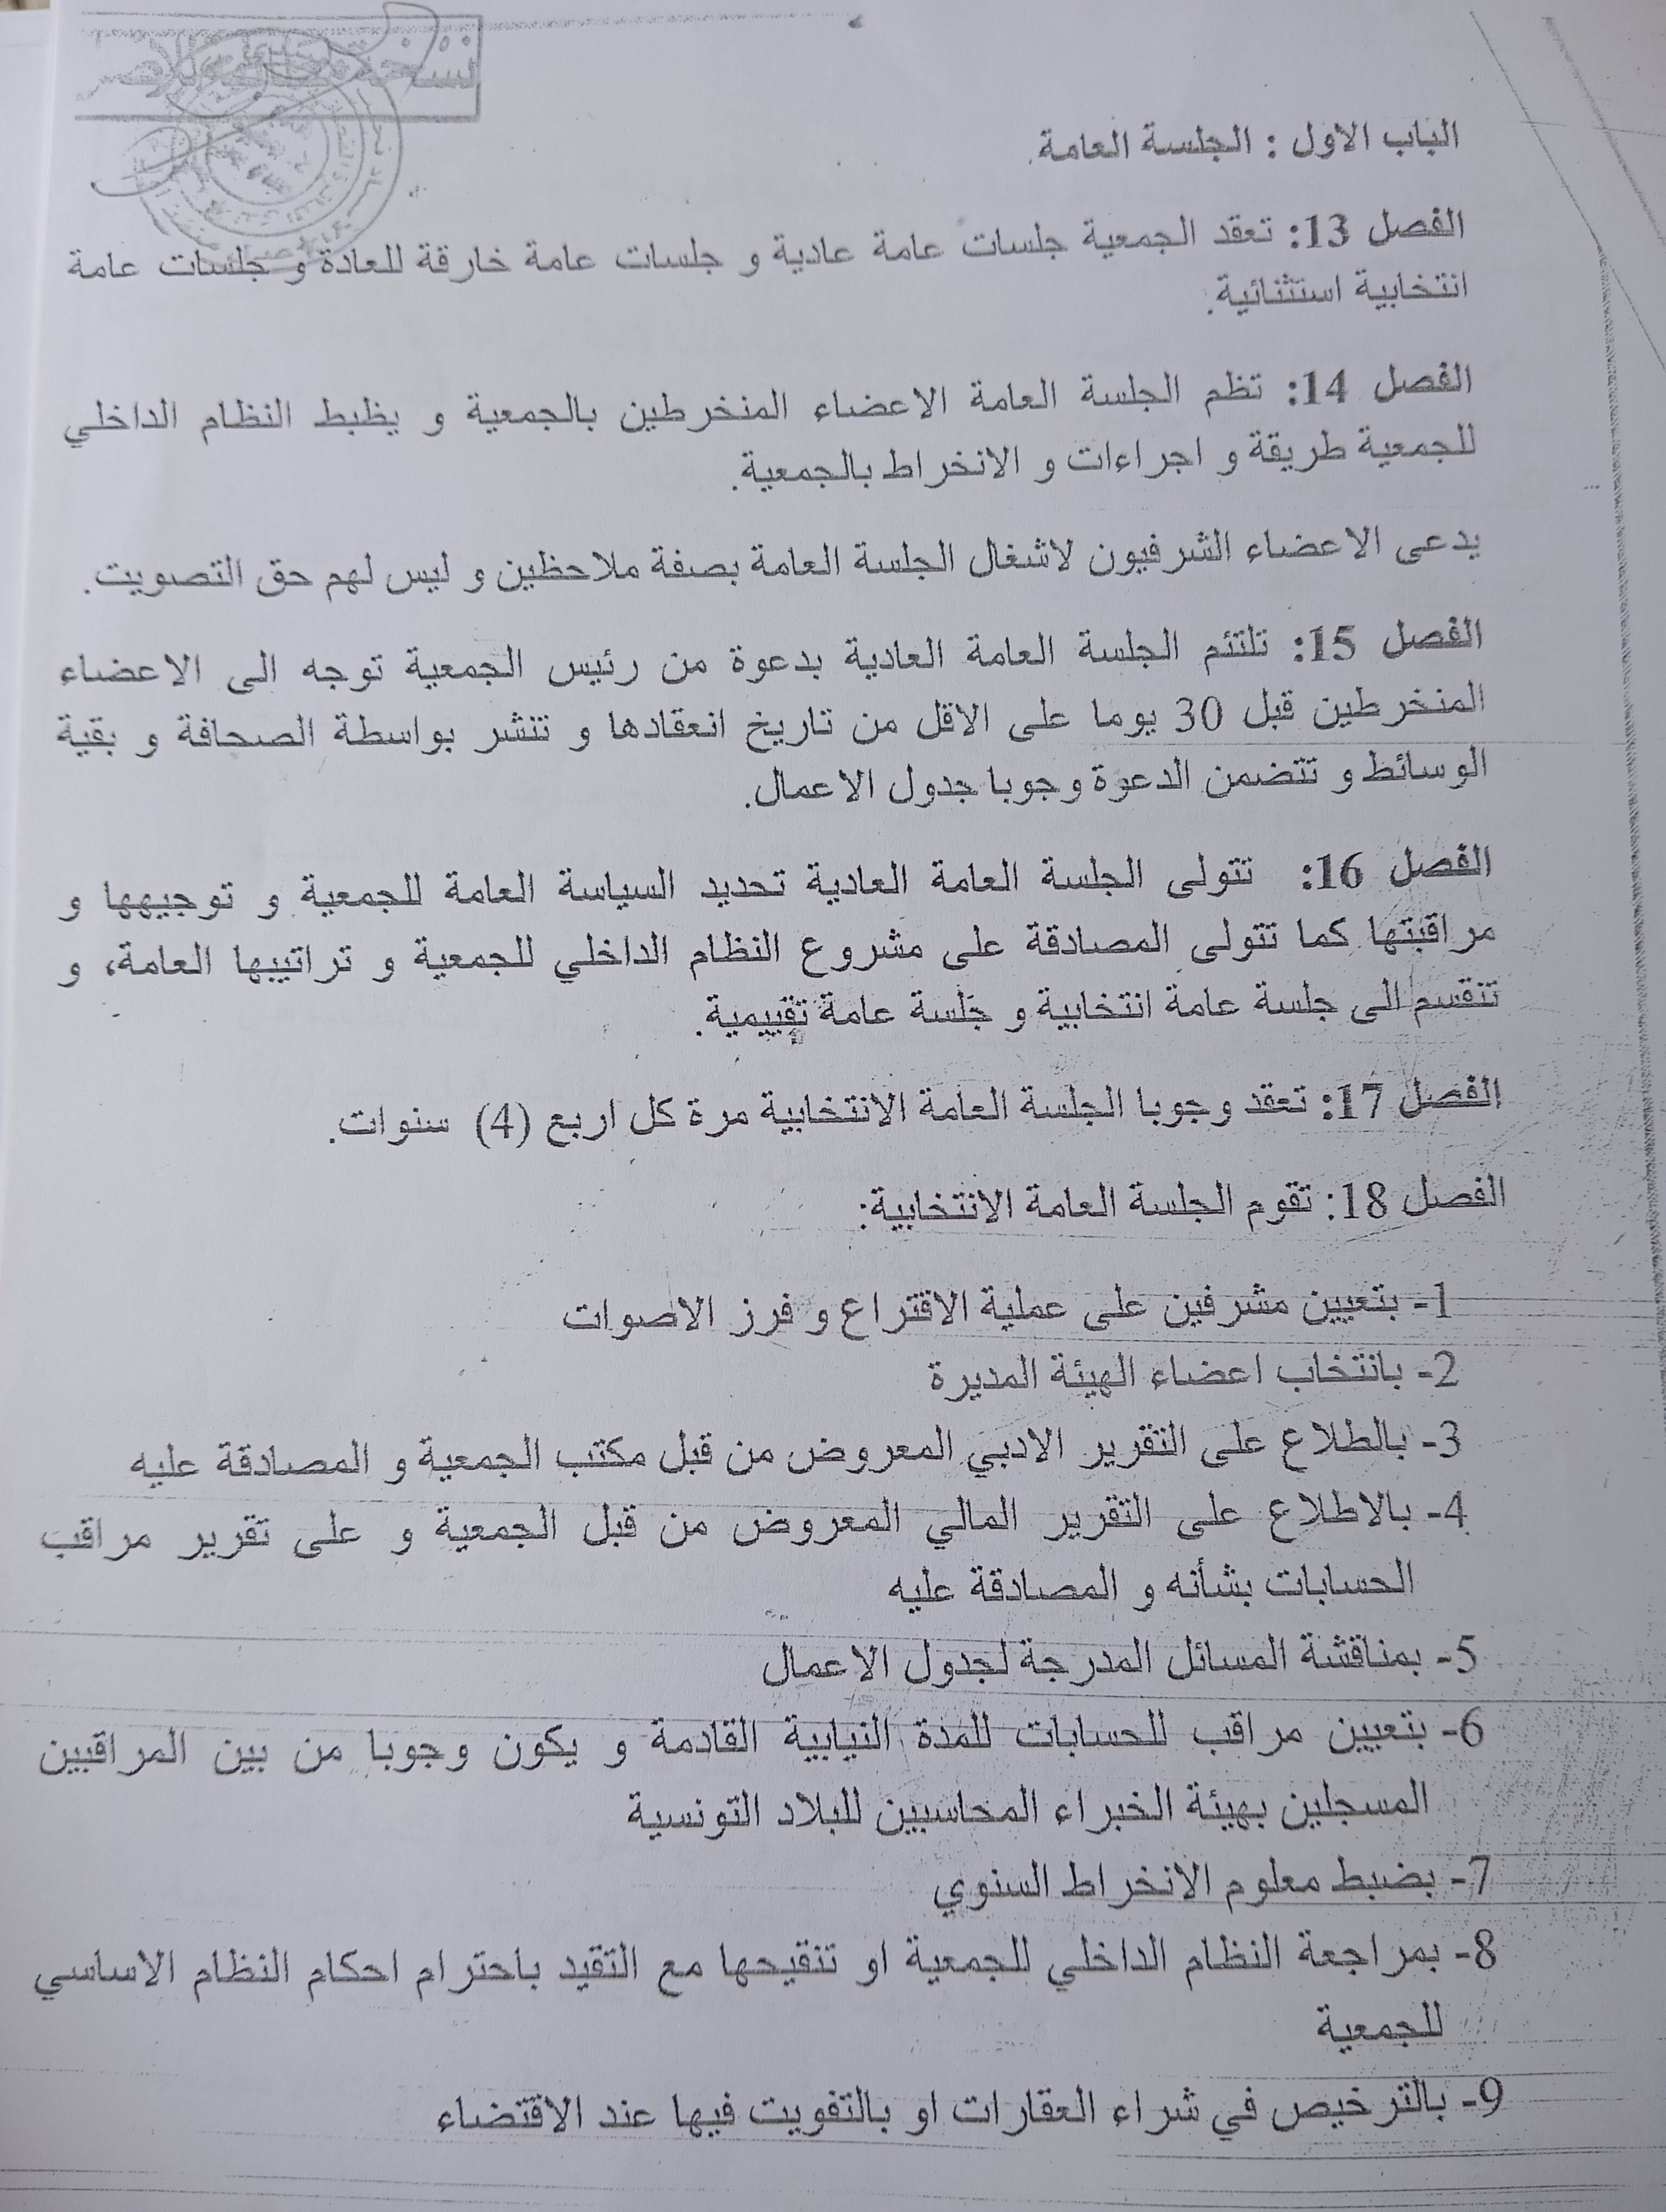 نسخة مطابقة للاصل
الباب الاول : الجلسة العامة
الفصل 13: تعقد الجمعية جلسات عامة عادية و جلسات عامة خارقة للعادة و جلسات عامة
انتخابية استثنائية.
الفصل 14: تظم الجلسة العامة الاعضاء المنخرطين بالجمعية و يظبط النظام الداخلي
للجمعية طريقة و اجراءات و الانخراط بالجمعية.
يدعى الاعضاء الشرفيون لاشغال الجلسة العامة بصفة ملاحظين و ليس لهم حق التصويت.
الفصل 15: تلتئم الجلسة العامة العادية بدعوة من رئيس الجمعية توجه الى الاعضاء
المنخرطين قبل 30 يوما على الاقل من تاريخ انعقادها و تنشر بواسطة الصحافة و بقية
الوسائط و تتضمن الدعوة وجوبا جدول الاعمال.
الفصل 16: تتولى الجلسة العامة العادية تحديد السياسة العامة للجمعية و توجيهها و
مراقبتها كما تتولى المصادقة على مشروع النظام الداخلي للجمعية و تراتيبها العامة، و
تنقسم الى جلسة عامة انتخابية و جلسة عامة تقييمية.
الفصل 17: تعقد وجوبا الجلسة العامة الانتخابية مرة كل اربع (4) سنوات.
الفصل 18: تقوم الجلسة العامة الانتخابية:
1- بتعيين مشرفين على عملية الاقتراع و فرز الاصوات
2- بانتخاب اعضاء الهيئة المديرة
3- بالطلاع على التقرير الادبي المعروض من قبل مكتب الجمعية و المصادقة عليه
4- بالاطلاع على التقرير المالي المعروض من قبل الجمعية و على تقرير مراقب
الحسابات بشأنه و المصادقة عليه
5- بمناقشة المسائل المدرجة لجدول الاعمال
6- بتعيين مراقب للحسابات للمدة النيابية القادمة و يكون وجوبا من بين المراقبين
المسجلين بهيئة الخبراء المحاسبين للبلاد التونسية
7- بضبط معلوم الانخراط السنوي
8- بمراجعة النظام الداخلي للجمعية او تنقيحها مع التقيد باحترام احكام النظام الاساسي
للجمعية
9- بالترخيص في شراء العقارات او بالتفويت فيها عند الاقتضاء